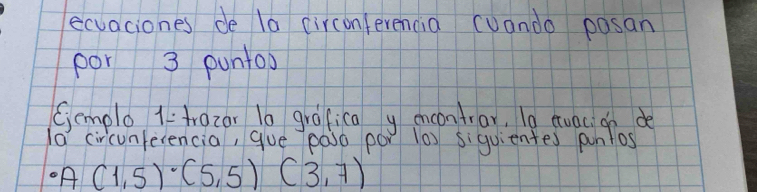 ecuaciones de la circonferencia cuando pasan
por 3 puntos
Ejemplo 1= trazar la gráfica y encontrar, la ecuación de
la circunferencia, que pasa por los siguientes puntos
•A (1,5) •(5,5) (3,7)